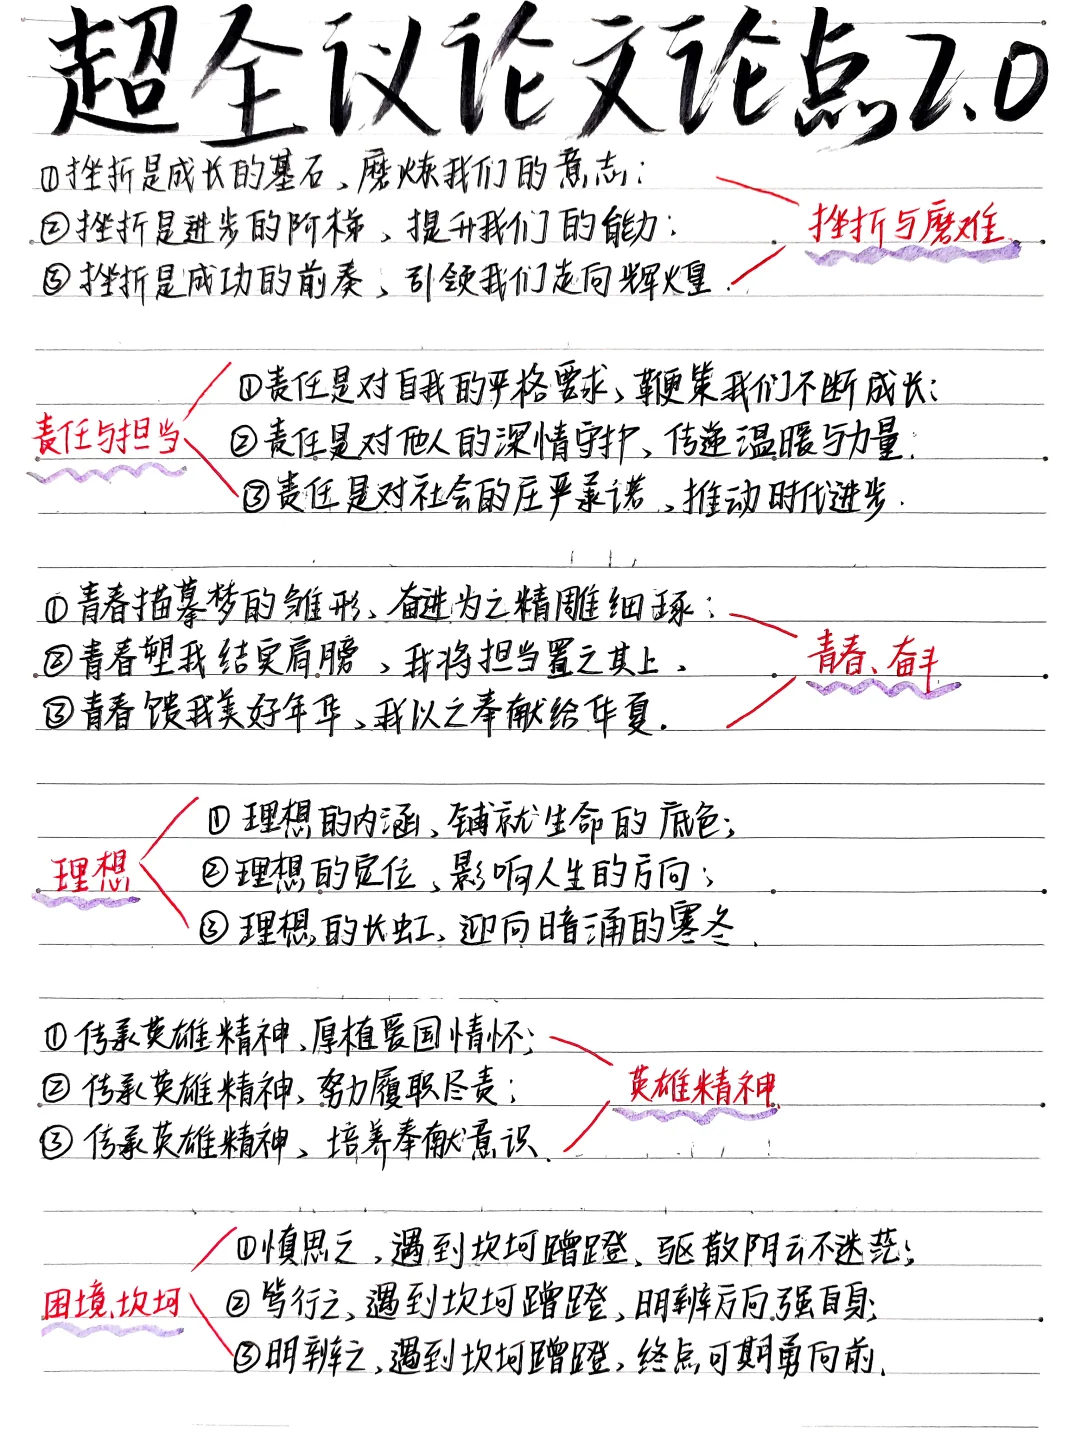 超全议论文论点2.0
①挫折是成长的基石、磨炼我们的意志；
②挫折是进步的阶梯、提升我们的能力；
挫折与磨难
③挫折是成功的前奏、引领我们走向辉煌.
①责任是对自我的严格要求、鞭策我们不断成长；
责任与担当
②责任是对他人的深情守护、传递温暖与力量；
③责任是对社会的庄严承诺、推动时代进步.
①青春描摹梦的雏形、奋进为之精雕细琢；
②青春塑我结实肩膀、我将担当置之其上、
青春、奋斗
③青春馈我美好年华、我以之奉献给华夏.
①理想的内涵、铺就生命的底色；
理想
②理想的定位、影响人生的方向；
③理想的长虹、迎向暗涌的寒冬.
①传承英雄精神、厚植爱国情怀；
②传承英雄精神、努力履职尽责；
英雄精神
③传承英雄精神、培养奉献意识.
①慎思之、遇到坎坷蹭蹬、驱散阴云不迷茫；
困境、坎坷
②笃行之、遇到坎坷蹭蹬、明辨方向强自身；
③明辨之、遇到坎坷蹭蹬、终点可期勇向前.